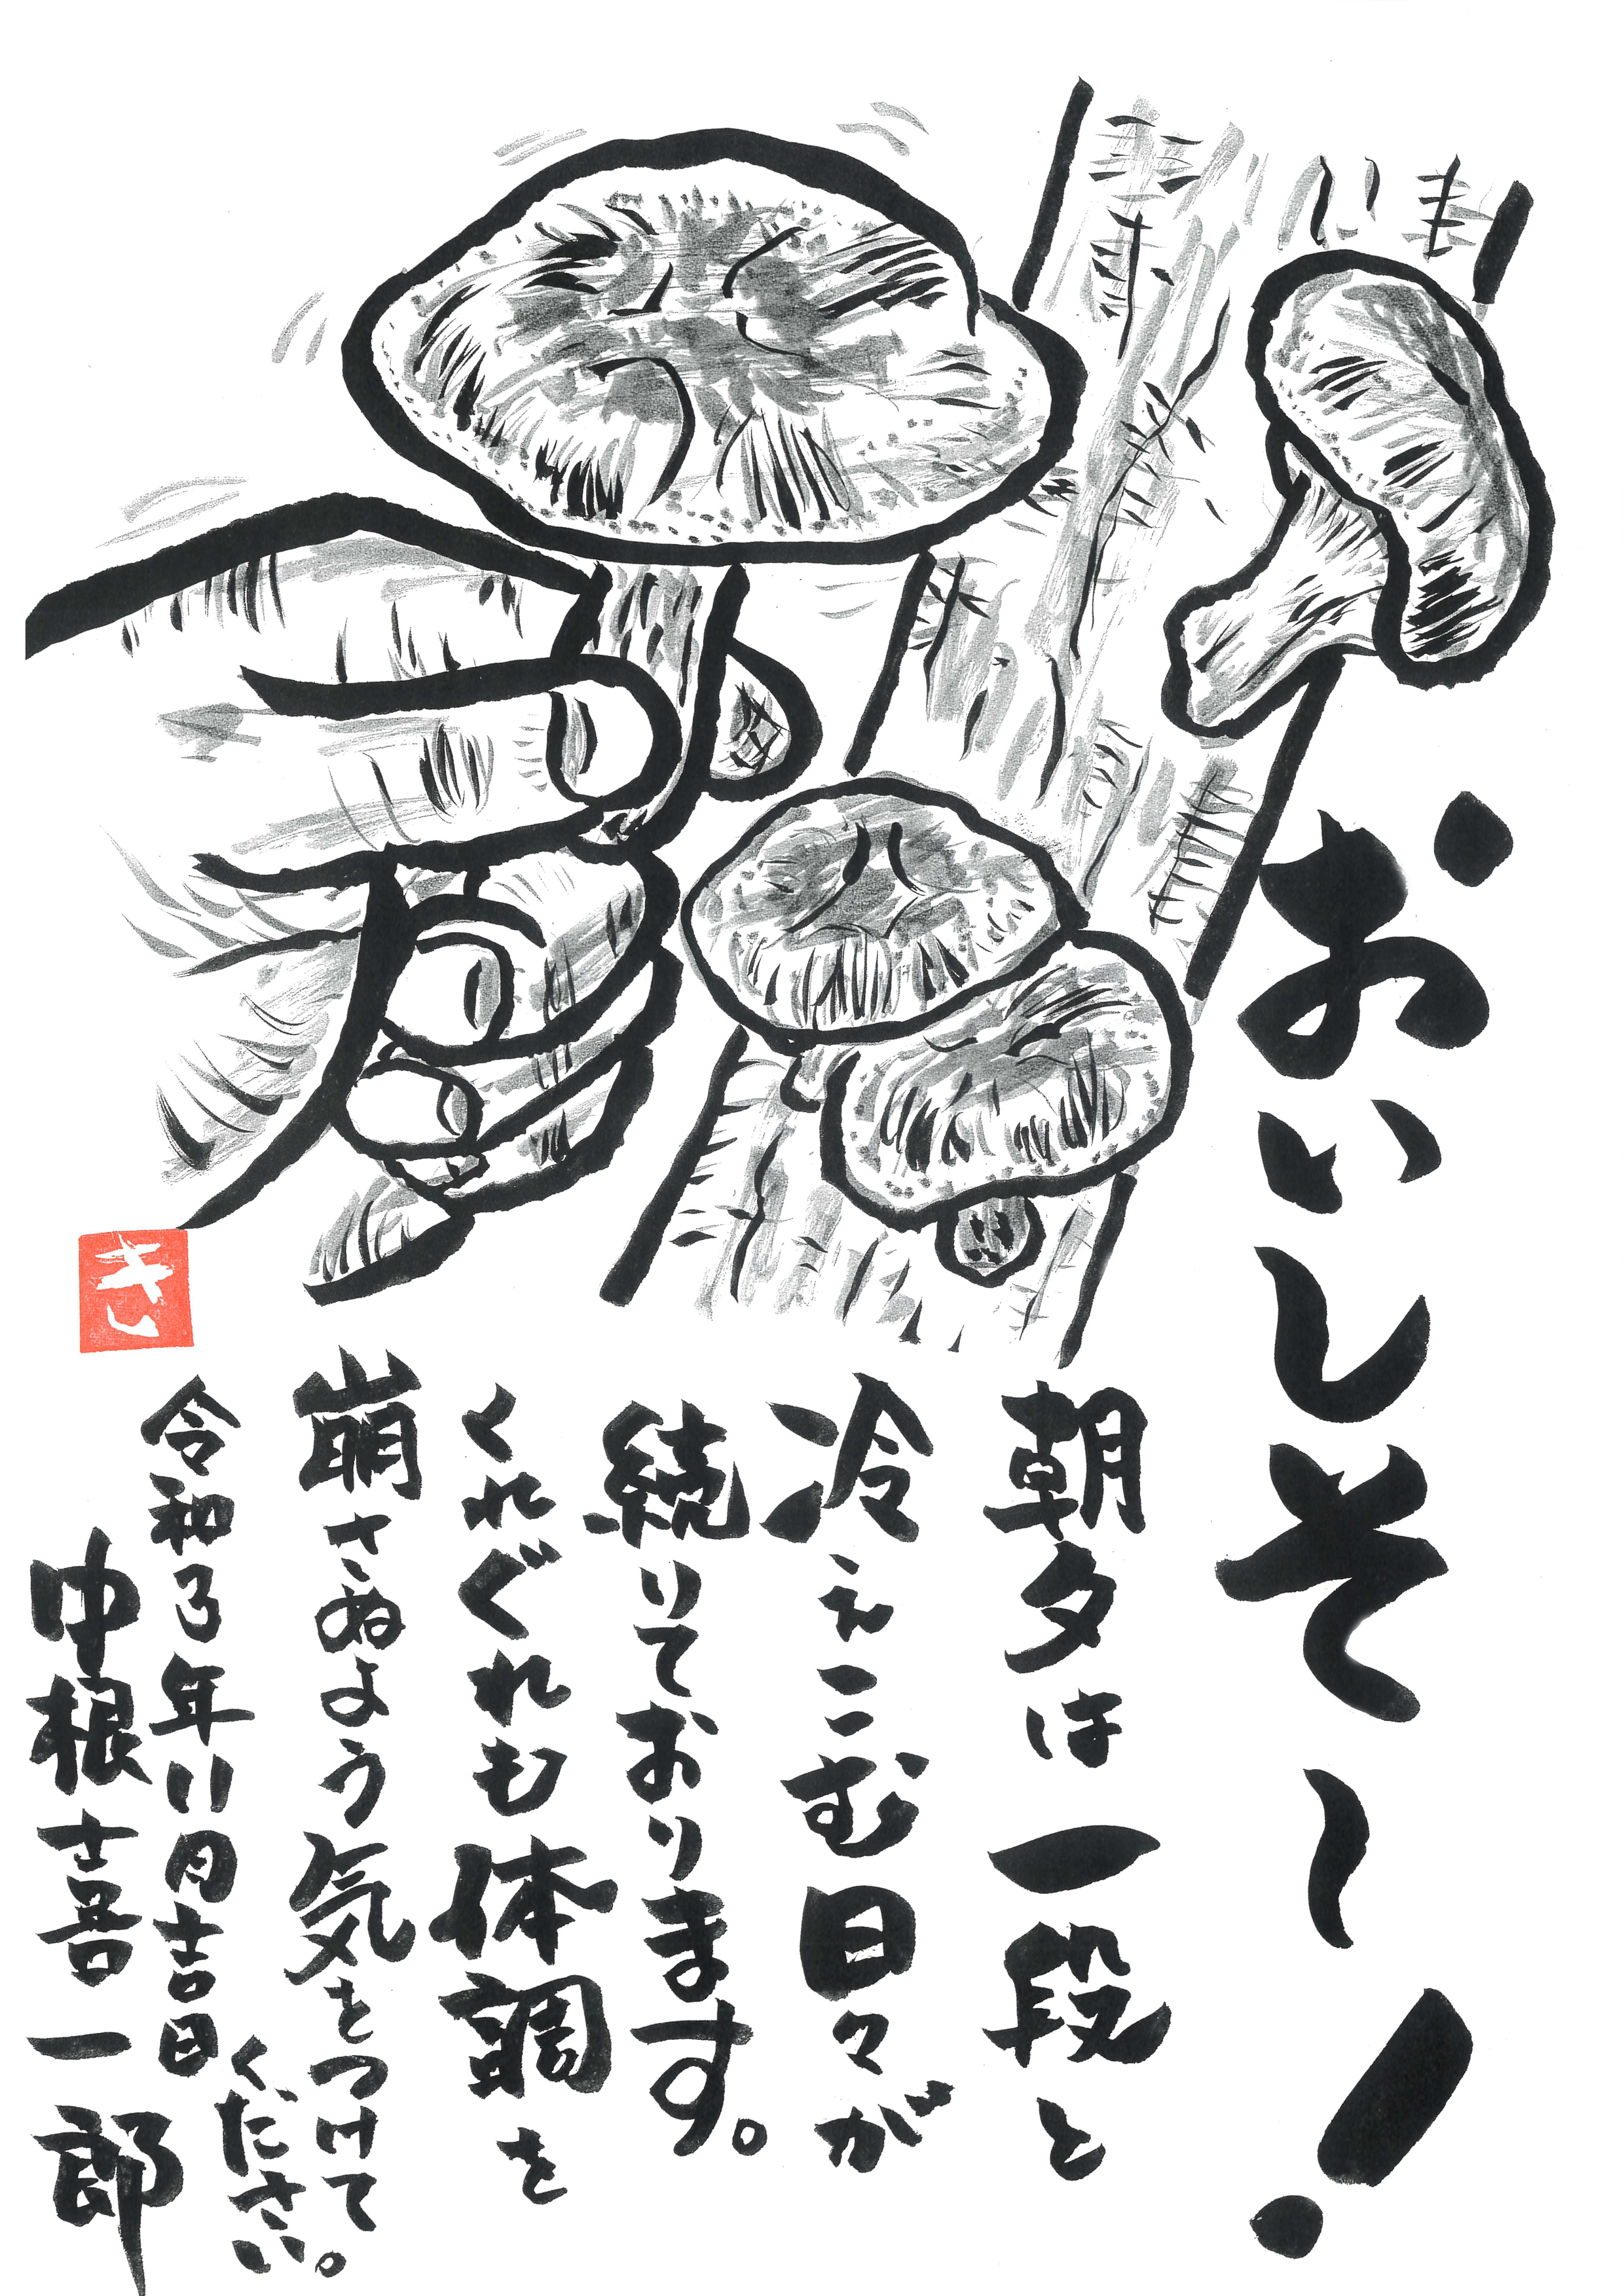 おいしそ〜！
朝夕は一段と
冷えこむ日々が
続いております。
くれぐれも体調を
崩さぬよう気をつけて
ください。
令和3年11月吉日
中根喜一郎
きし